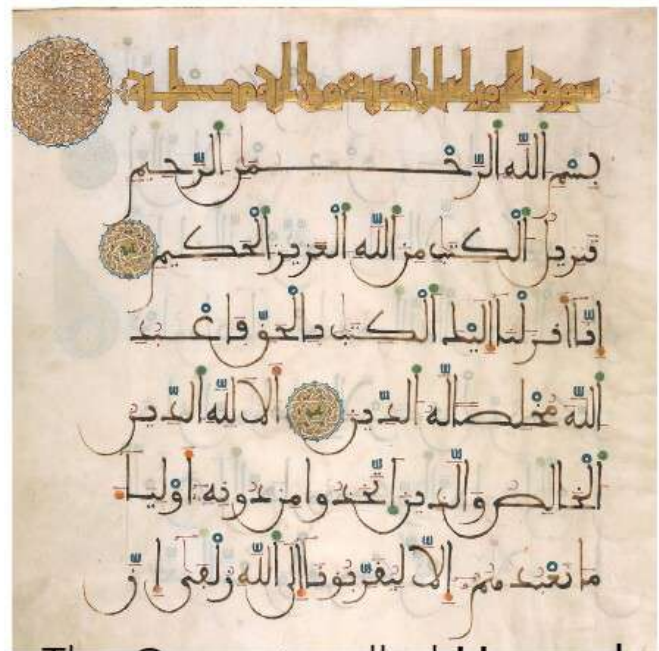 بِسْمِ اللَّهِ الرَّحْمٰنِ الرَّحِيمِ
تنزيل الكتب من الله العزيز الحكيم
إنّا أنزلنا إليك الكتب بالحقّ فاعبد
الله مخلصا له الدّين ألا لله الدّين
الخالص والذين اتّخذوا من دونه أولياء
ما نعبدهم إلّا ليقرّبونا إلى الله زلفى إنّ